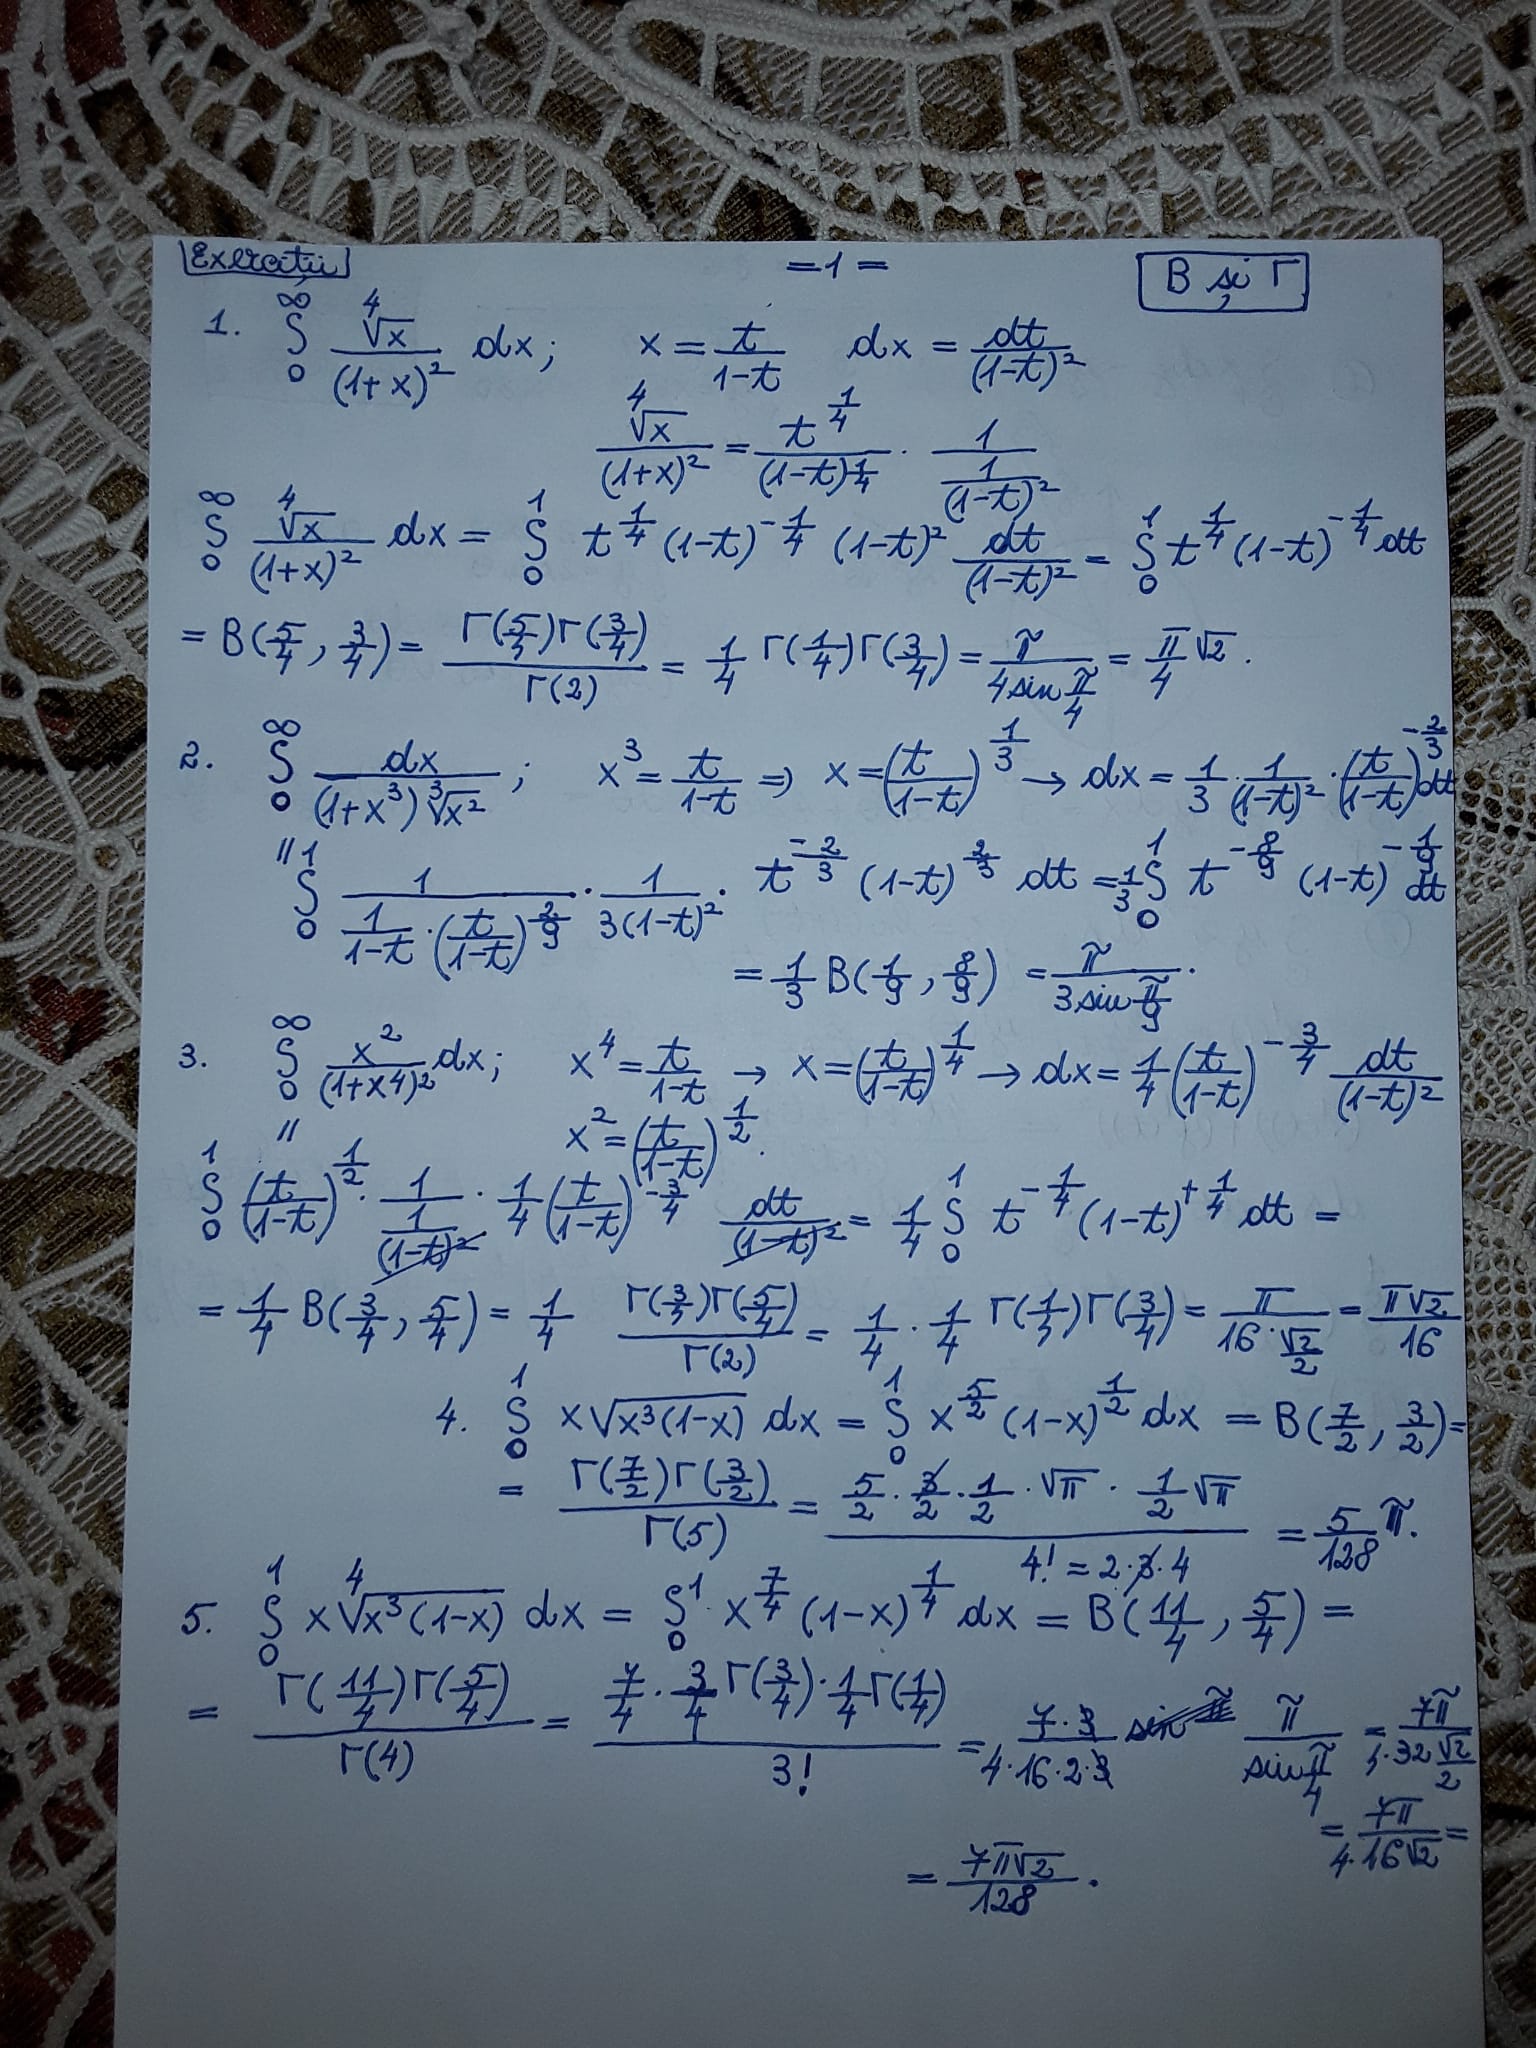 Exerciții =1= B și Γ
1. ∫₀^∞ ⁴√x / (1+x)² dx; x = t/(1-t) dx = dt/(1-t)²
⁴√x / (1+x)² = t^(1/4) / (1-t)^(1/4) · 1 / (1/(1-t)²)
∫₀^∞ ⁴√x / (1+x)² dx = ∫₀^1 t^(1/4) (1-t)^(-1/4) (1-t)² dt/(1-t)² = ∫₀^1 t^(1/4) (1-t)^(-1/4) dt
= B(5/4, 3/4) = Γ(5/4)Γ(3/4) / Γ(2) = 1/4 Γ(1/4)Γ(3/4) = π / (4 sin π/4) = π/4 √2.
2. ∫₀^∞ dx / ((1+x³) ³√x²); x³ = t/(1-t) ⇒ x = (t/(1-t))^(1/3) → dx = 1/3 · 1/(1-t)² · (t/(1-t))^(-2/3) dt
= ∫₀^1 1 / (1/(1-t) · (t/(1-t))^(2/9)) · 1/(3(1-t)²) · t^(-2/3) (1-t)^(2/3) dt = 1/3 ∫₀^1 t^(-8/9) (1-t)^(-1/9) dt
= 1/3 B(1/9, 8/9) = π / (3 sin π/9).
3. ∫₀^∞ x² / (1+x⁴)² dx; x⁴ = t/(1-t) → x = (t/(1-t))^(1/4) → dx = 1/4 (t/(1-t))^(-3/4) dt/(1-t)²
= x² = (t/(1-t))^(1/2).
∫₀^1 (t/(1-t))^(1/2) · 1 / (1/(1-t)²) · 1/4 (t/(1-t))^(-3/4) dt/(1-t)² = 1/4 ∫₀^1 t^(-1/4) (1-t)^(+1/4) dt =
= 1/4 B(3/4, 5/4) = 1/4 Γ(3/4)Γ(5/4) / Γ(2) = 1/4 · 1/4 Γ(1/4)Γ(3/4) = π / (16 · √2/2) = π√2 / 16
4. ∫₀^1 x√(x³(1-x)) dx = ∫₀^1 x^(5/2) (1-x)^(1/2) dx = B(7/2, 3/2) =
= Γ(7/2)Γ(3/2) / Γ(5) = (5/2 · 3/2 · 1/2 · √π · 1/2 √π) / (4! = 2·3·4) = 5/128 π.
5. ∫₀^1 x ⁴√(x³(1-x)) dx = ∫₀^1 x^(7/4) (1-x)^(1/4) dx = B(11/4, 5/4) =
= Γ(11/4)Γ(5/4) / Γ(4) = (7/4 · 3/4 Γ(3/4) · 1/4 Γ(1/4)) / 3! = 7·3 / (4·16·2·3) π / (sin π/4) = 7π / (4·32 √2/2)
= 7π / (4·16√2) =
= 7π√2 / 128 .